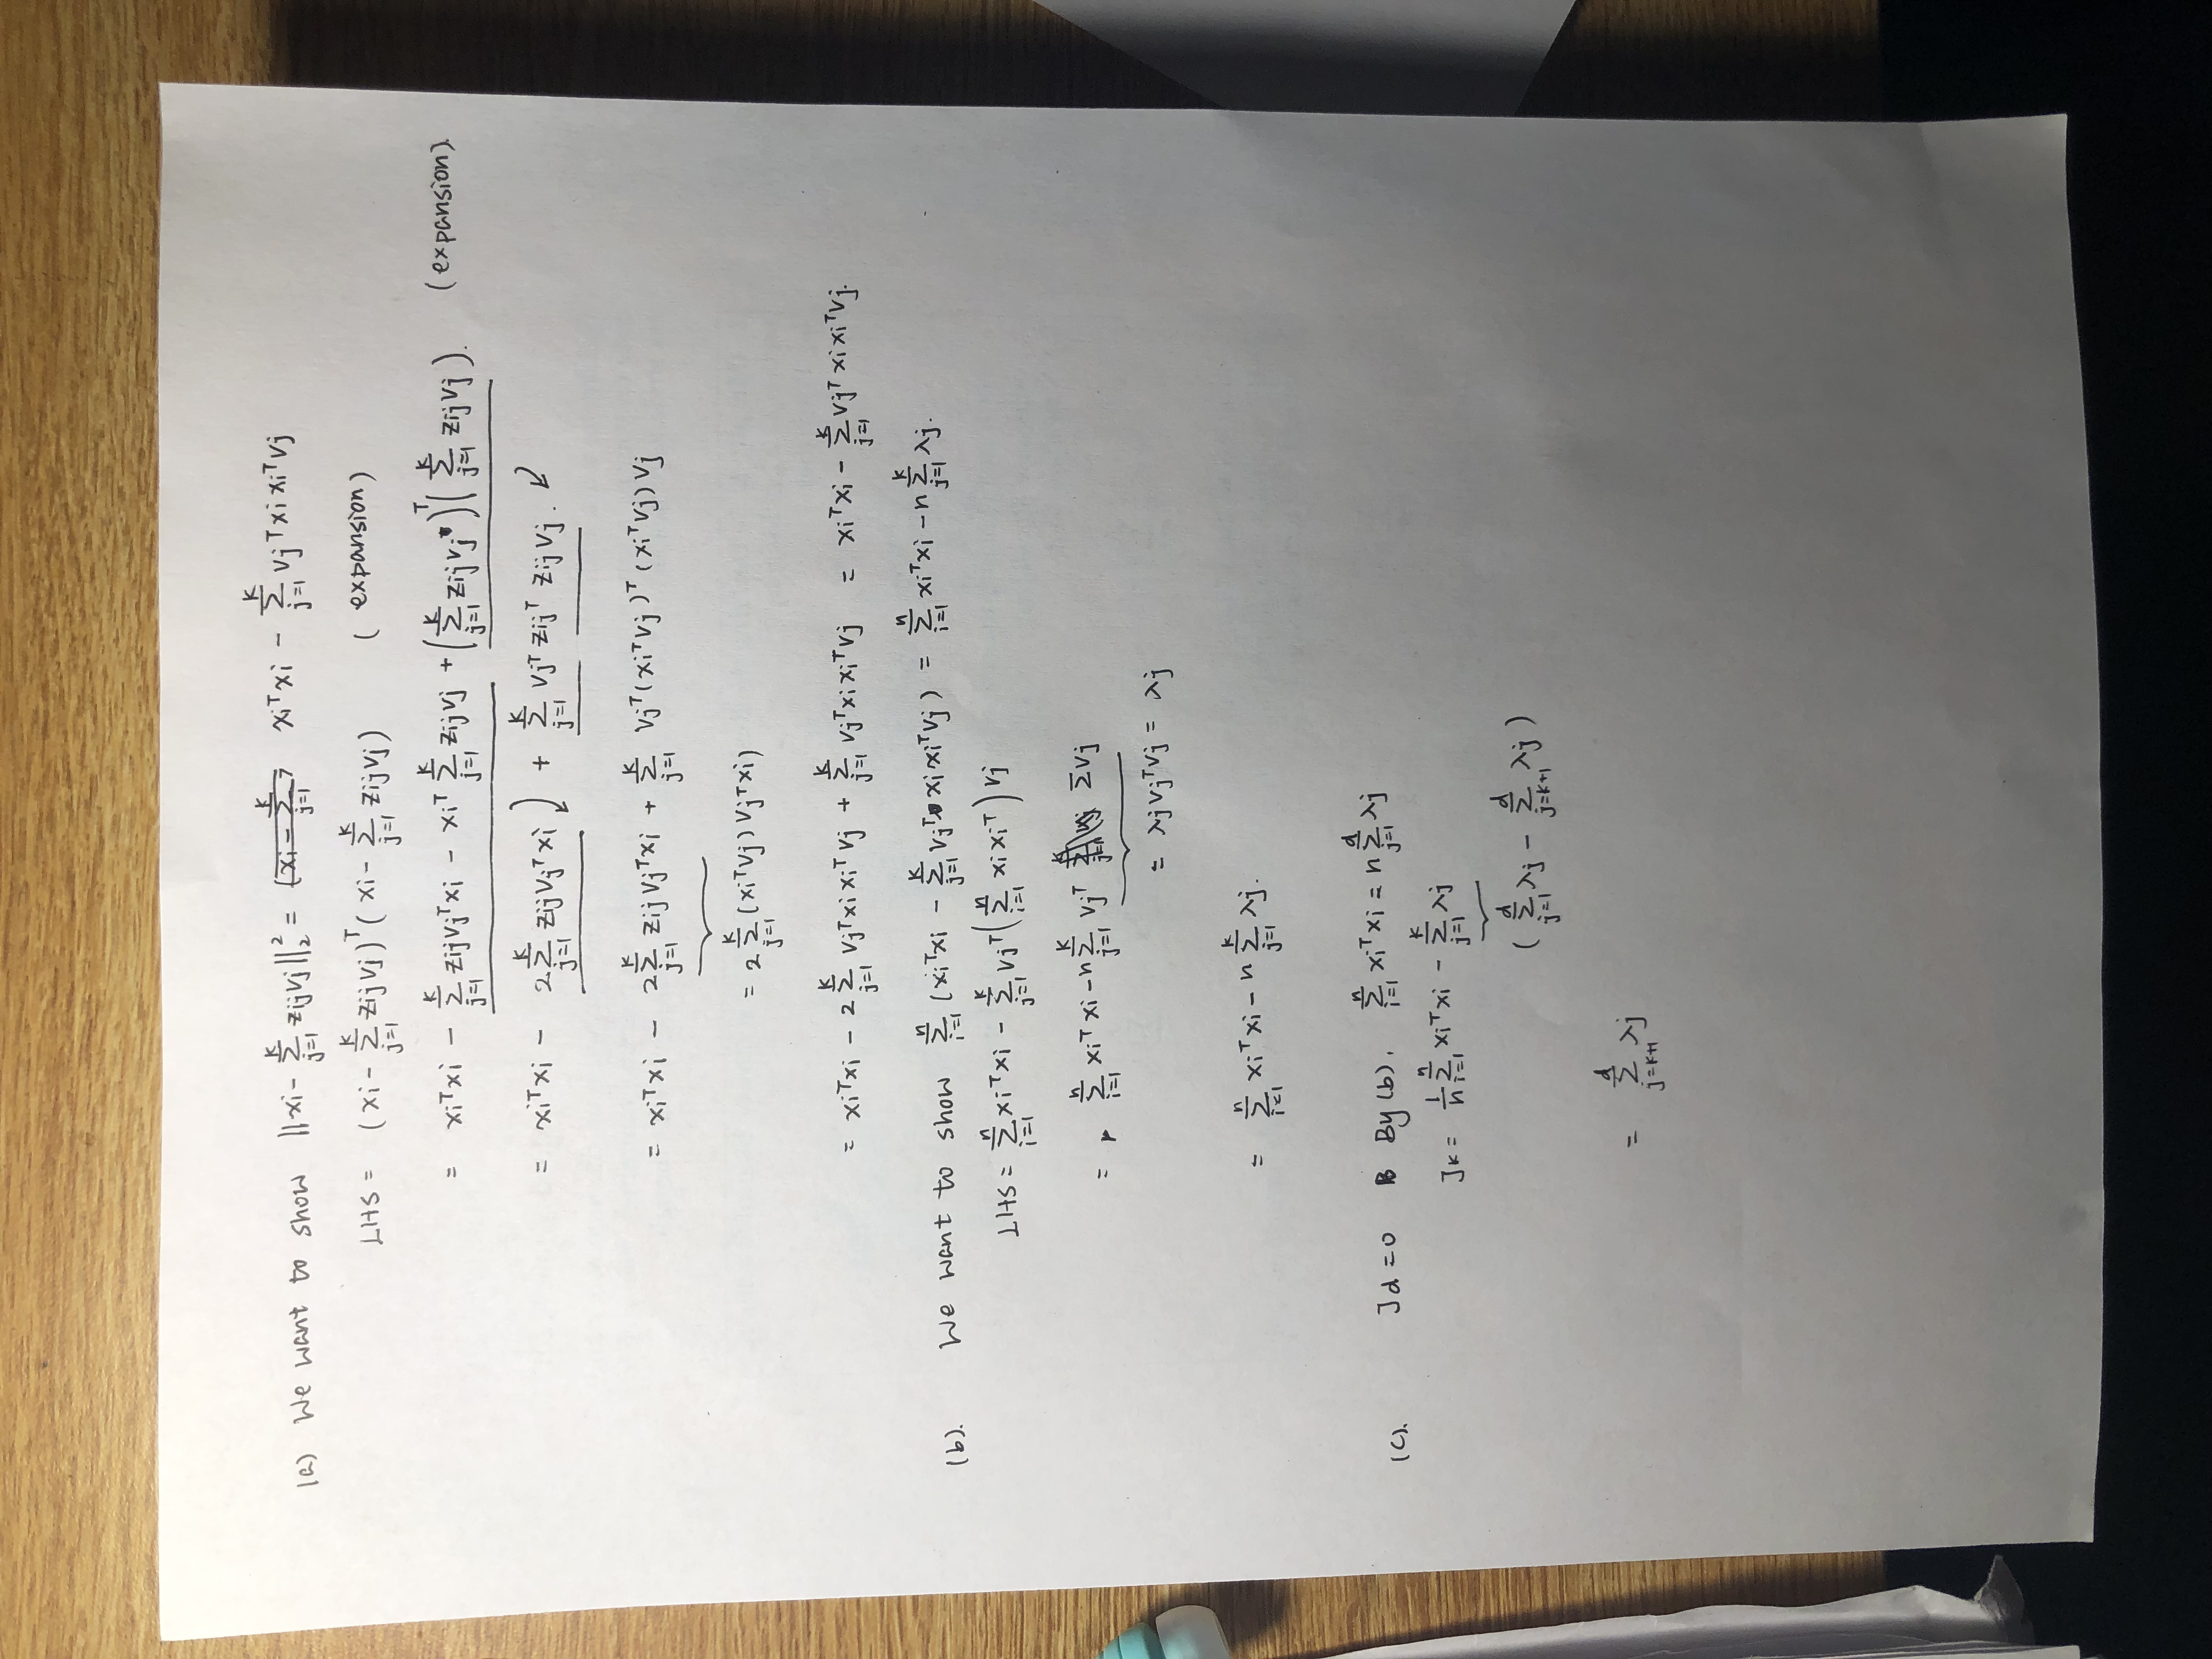 (a) We want to show ||xi - Σ_{j=1}^{k} zij vj||_2^2 = xi^T xi - Σ_{j=1}^{k} vj^T xi xi^T vj
LHS = (xi - Σ_{j=1}^{k} zij vj)^T (xi - Σ_{j=1}^{k} zij vj) (expansion)
= xi^T xi - Σ_{j=1}^{k} zij vj^T xi - xi^T Σ_{j=1}^{k} zij vj + (Σ_{j=1}^{k} zij vj)^T (Σ_{j=1}^{k} zij vj). (expansion).
= xi^T xi - 2 Σ_{j=1}^{k} zij vj^T xi + Σ_{j=1}^{k} vj^T zij^T zij vj.
= xi^T xi - 2 Σ_{j=1}^{k} zij vj^T xi + Σ_{j=1}^{k} vj^T (xi^T vj)^T (xi^T vj) vj
= 2 Σ_{j=1}^{k} (xi^T vj) vj^T xi)
= xi^T xi - 2 Σ_{j=1}^{k} vj^T xi xi^T vj + Σ_{j=1}^{k} vj^T xi xi^T vj = xi^T xi - Σ_{j=1}^{k} vj^T xi xi^T vj.
(b). We want to show Σ_{i=1}^{n} (xi^T xi - Σ_{j=1}^{k} vj^T xi xi^T vj) = Σ_{i=1}^{n} xi^T xi - n Σ_{j=1}^{k} λj.
LHS = Σ_{i=1}^{n} xi^T xi - Σ_{j=1}^{k} vj^T (Σ_{i=1}^{n} xi xi^T) vj
= Σ_{i=1}^{n} xi^T xi - n Σ_{j=1}^{k} vj^T Σ vj
= λj vj^T vj = λj
= Σ_{i=1}^{n} xi^T xi - n Σ_{j=1}^{k} λj.
(c). Jd = 0 By (b), Σ_{i=1}^{n} xi^T xi = n Σ_{j=1}^{d} λj
Jk = 1/n Σ_{i=1}^{n} xi^T xi - Σ_{j=1}^{k} λj
(Σ_{j=1}^{d} λj - Σ_{j=k+1}^{d} λj)
= Σ_{j=k+1}^{d} λj